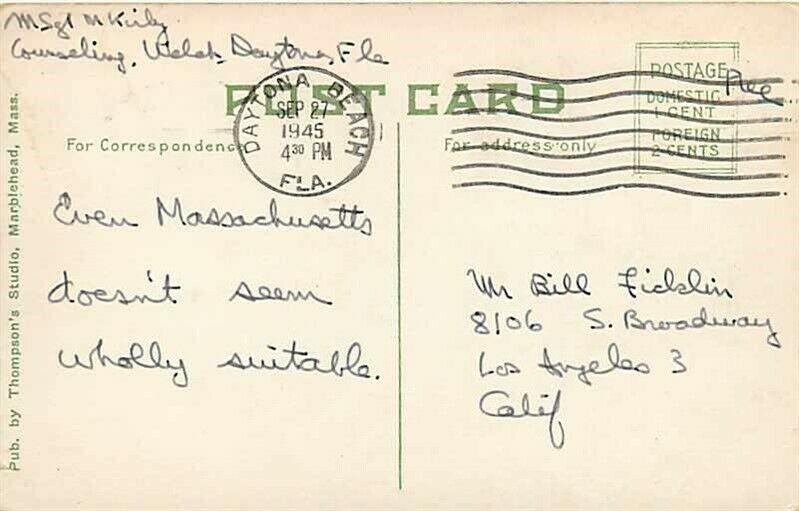 MSgt M Kirby
Counseling, Welch, Daytona, Fla
POST CARD
DAYTONA BEACH
SEP 27
1945
4 30 PM
FLA.
POSTAGE
DOMESTIC
1 CENT
FOREIGN
2 CENTS
Free
For Correspondence
For address only
Even Massachusetts
doesn't seem
wholly suitable.
Mr Bill Ficklin
8106 S. Broadway
Los Angeles 3
Calif
Pub. by Thompson's Studio, Marblehead, Mass.